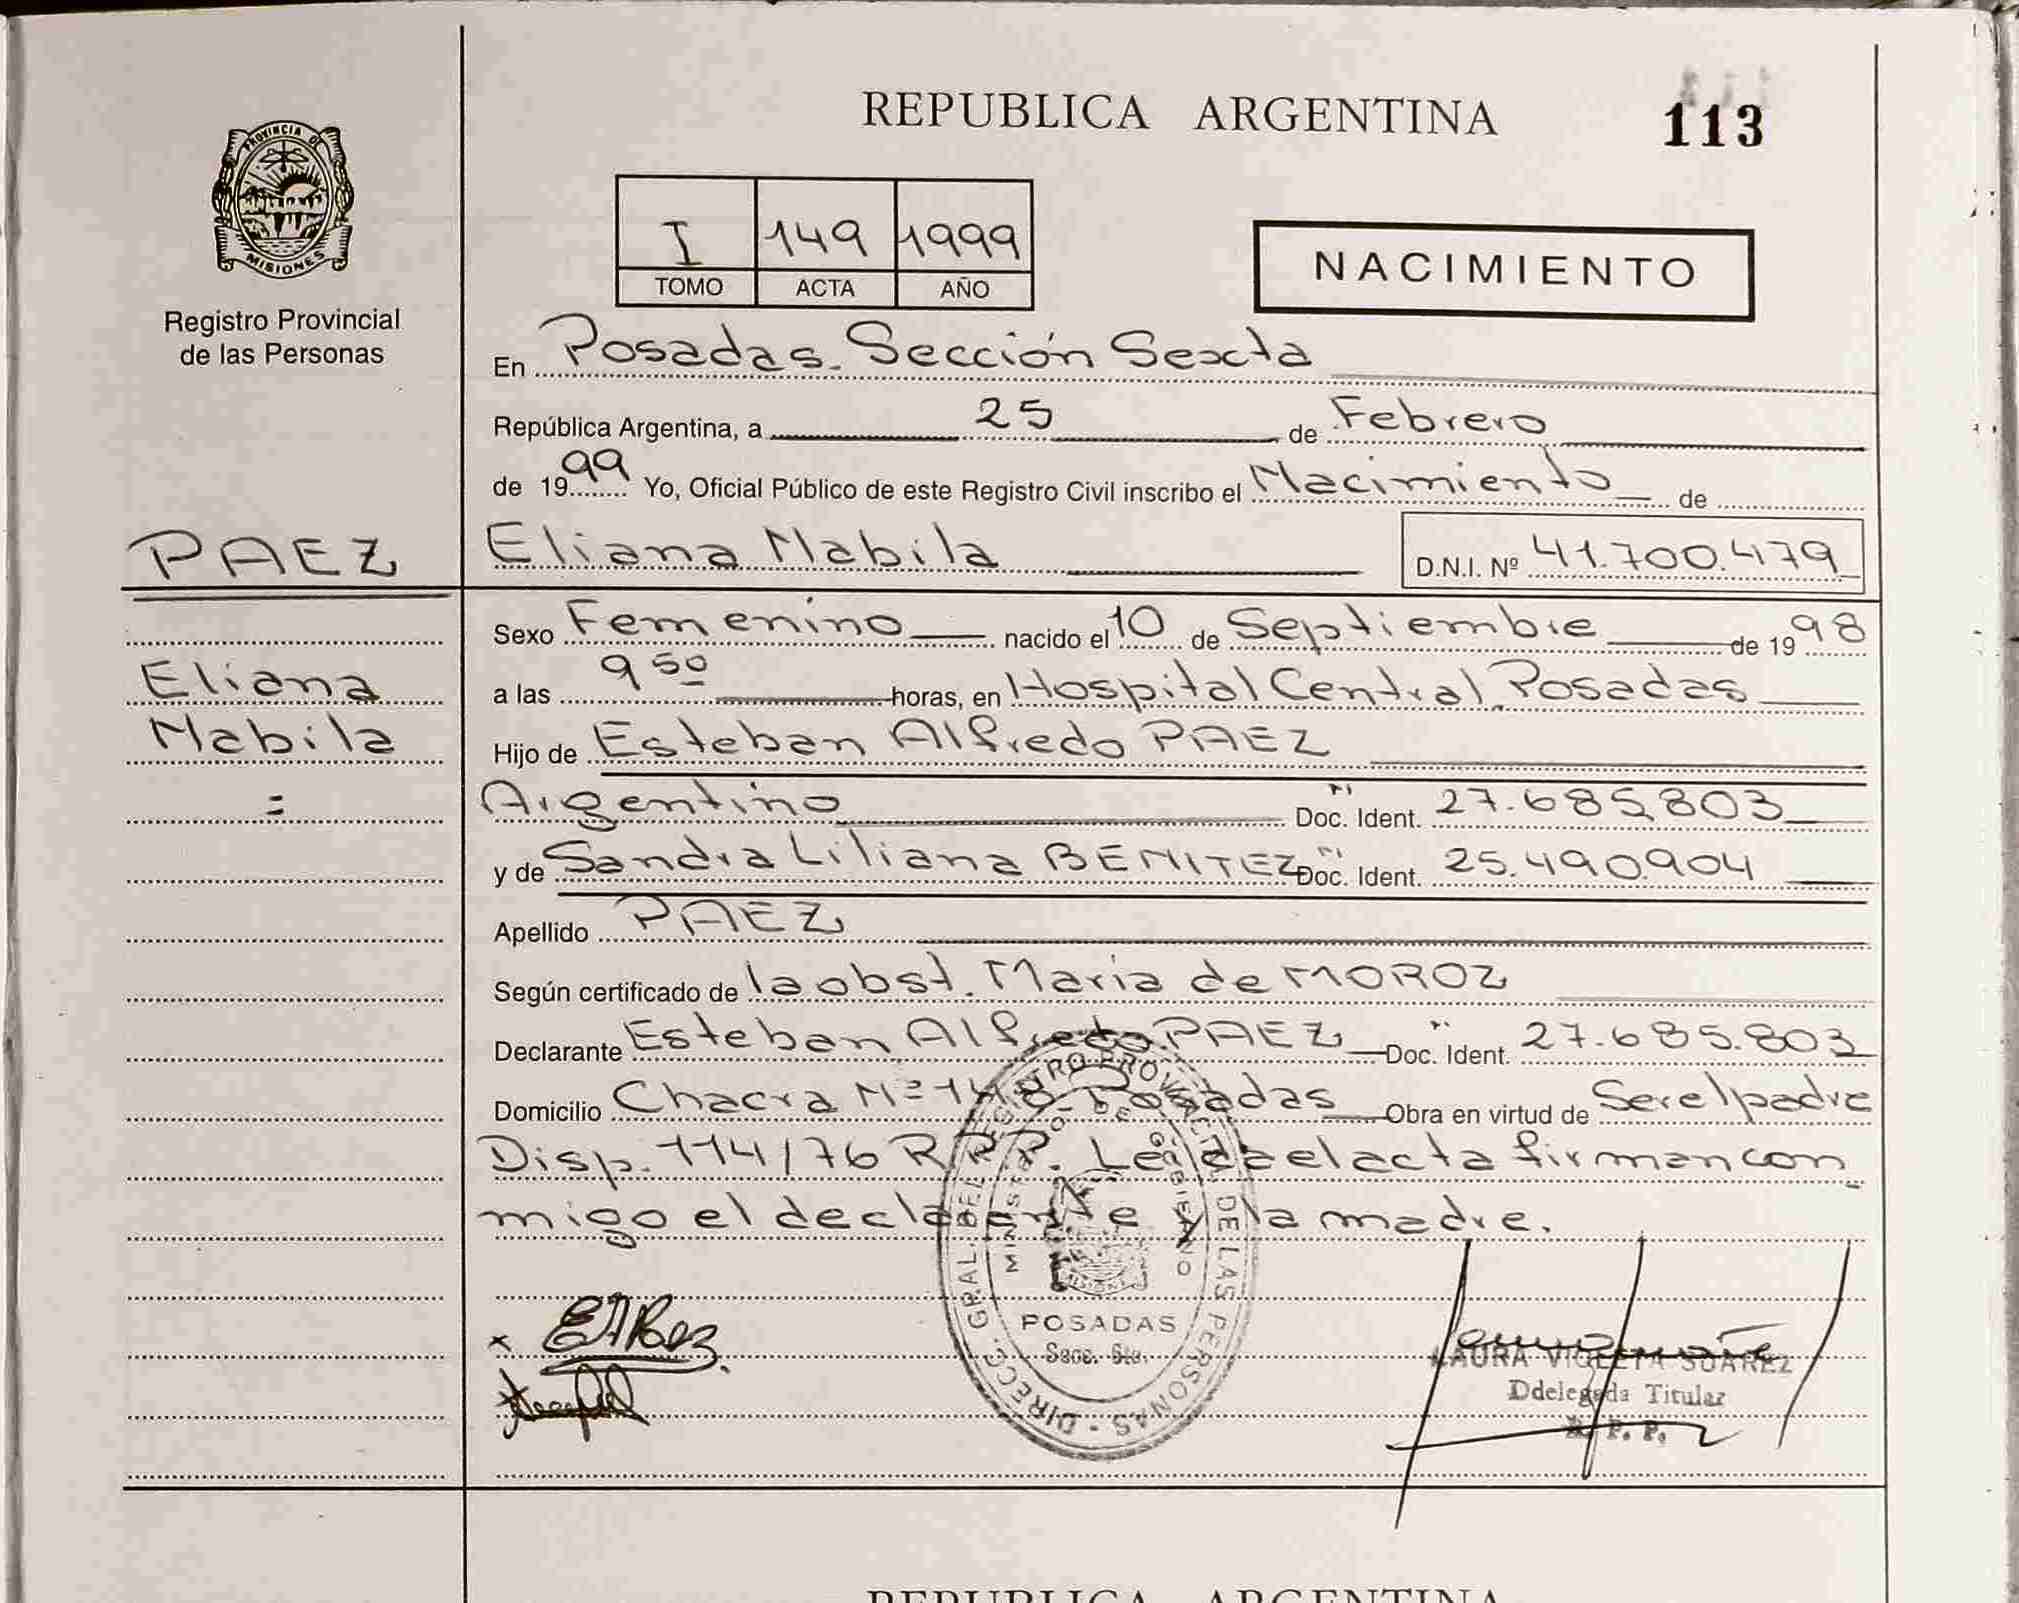 REPUBLICA ARGENTINA
113
PROVINCIA DE
MISIONES
Registro Provincial
de las Personas
I 149 1999
TOMO ACTA AÑO
NACIMIENTO
En Posadas. Sección Sexta
República Argentina, a 25 de Febrero
de 1999 Yo, Oficial Público de este Registro Civil inscribo el Nacimiento de
PAEZ
Eliana Nabila D.N.I. Nº 41.700.479
Sexo Femenino nacido el 10 de Septiembre de 1998
Eliana
Nabila
=
a las 9 50 horas, en Hospital Central Posadas
Hijo de Esteban Alfredo PAEZ
Argentino Doc. Ident. 27.685.803
y de Sandra Liliana BENITEZ Doc. Ident. 25.490.904
Apellido PAEZ
Según certificado de la obst. Maria de MOROZ
Declarante Esteban Alfredo PAEZ Doc. Ident. 27.685.803
Domicilio Chacra Nº 148 - Posadas Obra en virtud de Ser el padre
Disp. 114/76 R.P.P. Leída el acta firman con
migo el declarante y la madre.
DIRECC. GRAL. DEL REGISTRO PROVINCIAL DE LAS PERSONAS
MINISTERIO DE GOBIERNO
POSADAS
Secc. 6ta.
LAURA VIOLETA SUAREZ
Ddelegada Titular
R. P. P.
REPUBLICA ARGENTINA